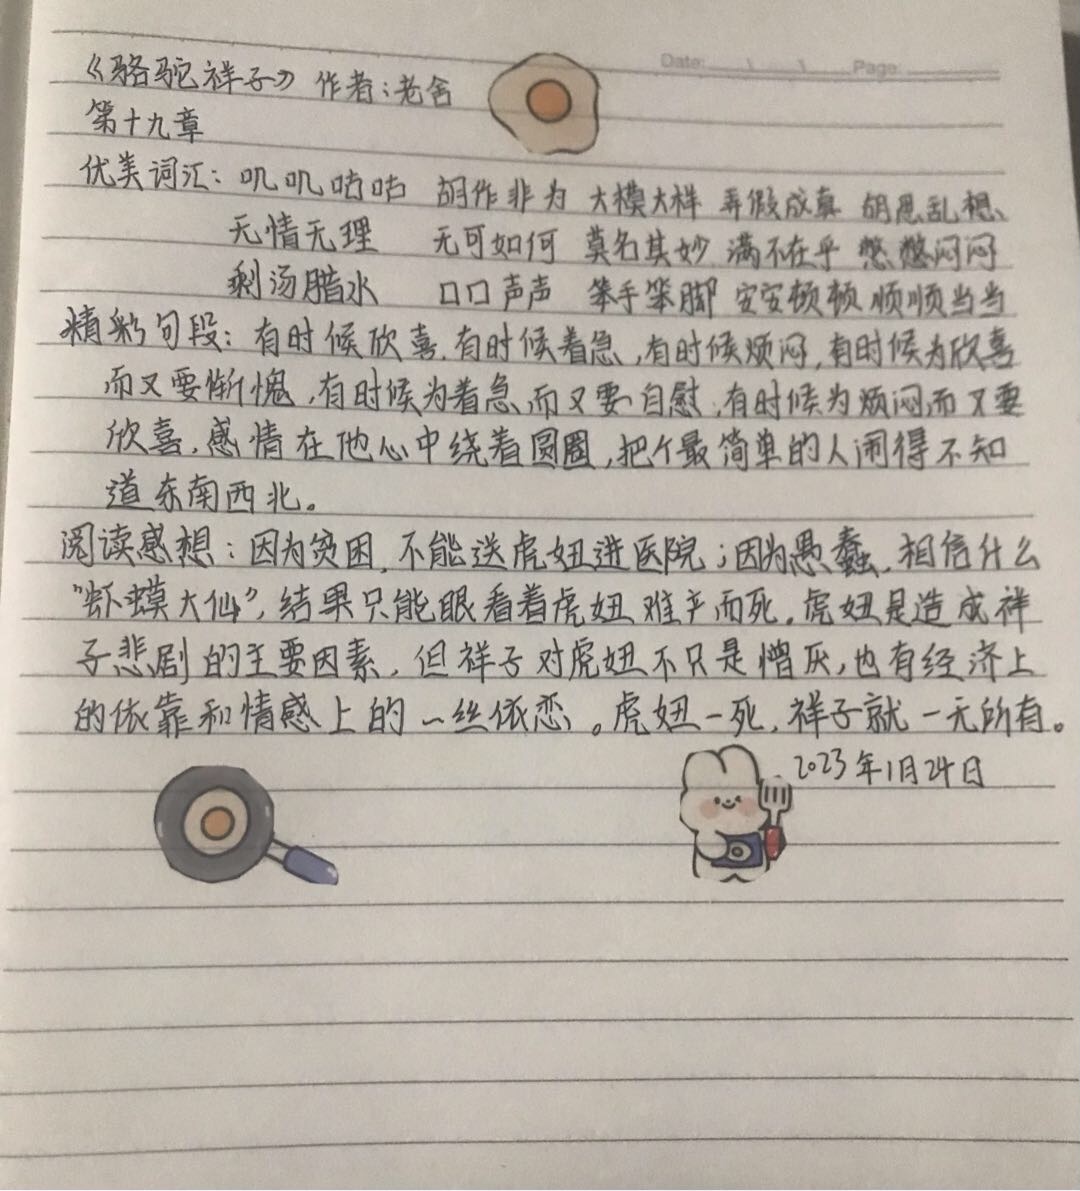 Date: Page:
《骆驼祥子》 作者：老舍
第十九章
优美词汇：叽叽咕咕 胡作非为 大模大样 弄假成真 胡思乱想、
无情无理 无可如何 莫名其妙 满不在乎 憋憋闷闷
剩汤腊水 口口声声 笨手笨脚 安安顿顿 顺顺当当
精彩句段：有时候欣喜，有时候着急，有时候烦闷，有时候为欣喜
而又要惭愧，有时候为着急而又要自慰，有时候为烦闷而又要
欣喜，感情在他心中绕着圆圈，把个最简单的人闹得不知
道东南西北。
阅读感想：因为贫困，不能送虎妞进医院；因为愚蠢，相信什么
“虾蟆大仙”，结果只能眼看着虎妞难产而死。虎妞是造成祥
子悲剧的主要因素，但祥子对虎妞不只是憎厌，也有经济上
的依靠和情感上的一丝依恋。虎妞一死，祥子就一无所有。
2023年1月24日